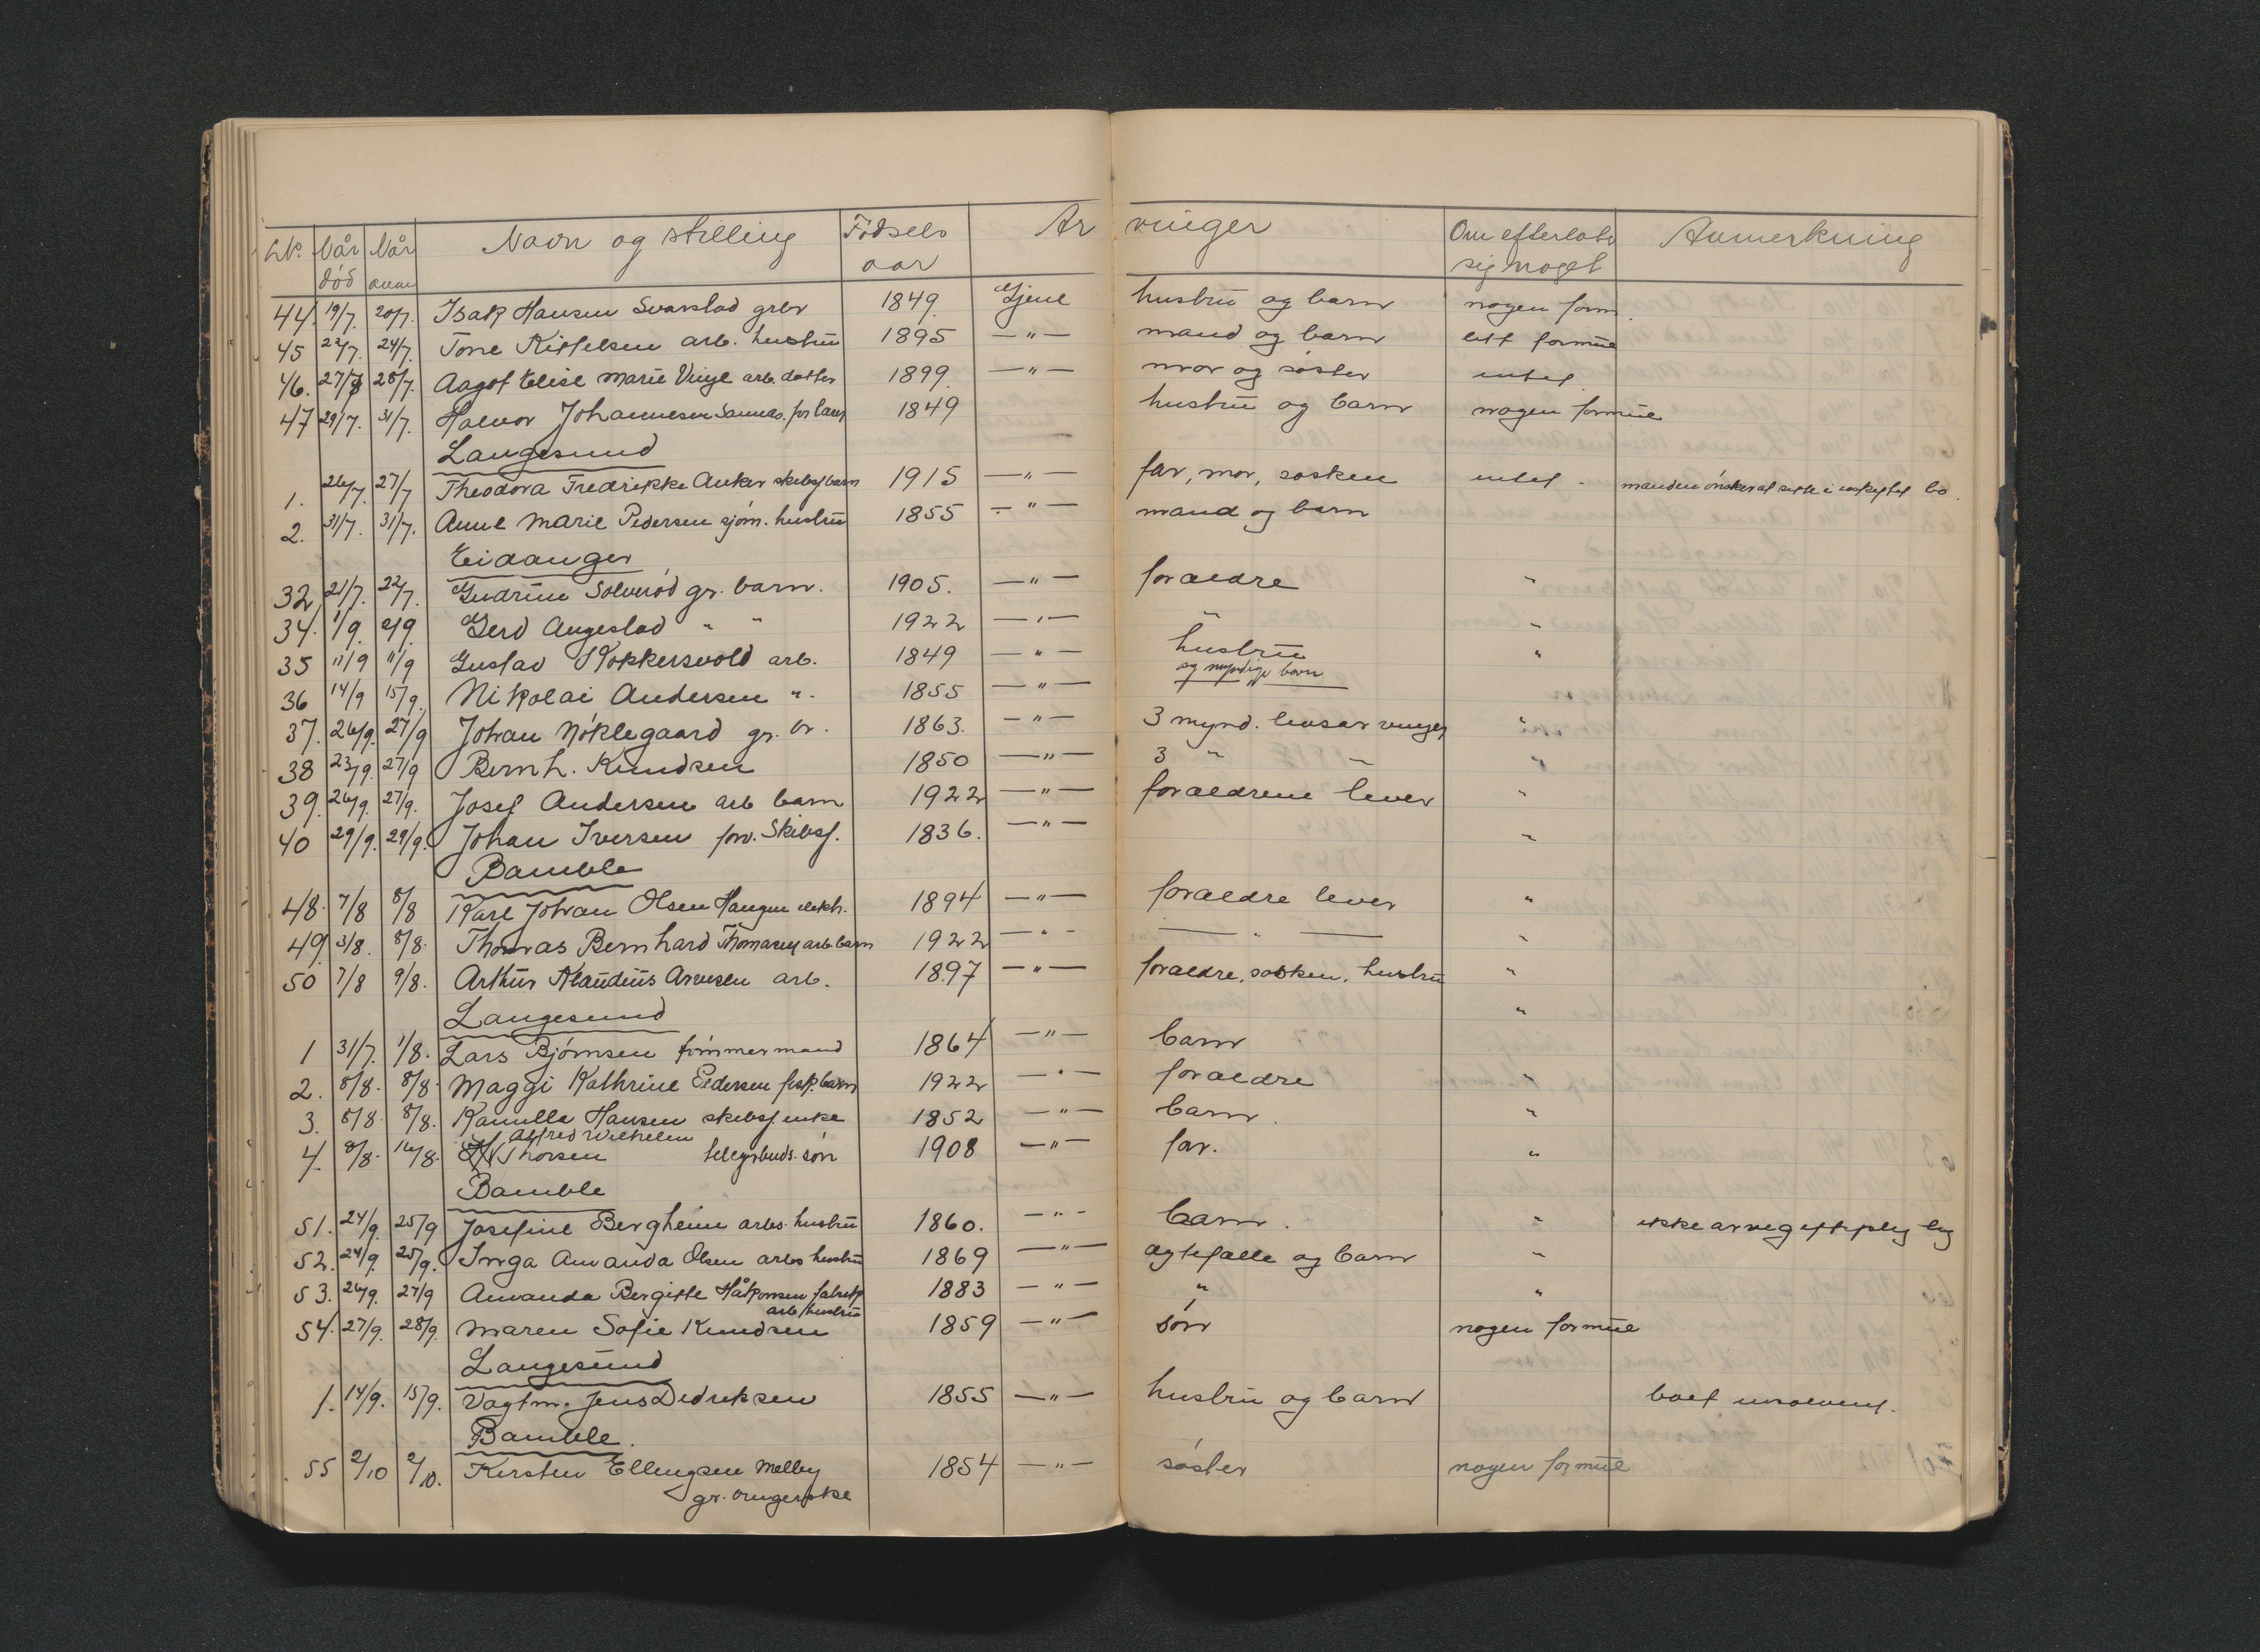 Når Når Navn og stilling Fødsels Ar vinger Om efterlots Anmerkning
død anm aar sig noget
44. 19/7. 20/7. Isak Hansen Svarstad grbr 1849. Gjenl hustru og barn nogen form.
45 22/7. 24/7. Tone Kittelsen arb. hustru 1895 — " — mand og barn litt formue
46. 27/7 28/7. Aagot Elise Marie Vinje arb. datter 1899. — " — mor og søster intet
47 29/7. 31/7. Halvor Johannesen Sannes, 1849 hustru og barn nogen formue
Langesund
1. 26/7. 27/7 Theodora Fredrikke Anker skibsf barn 1915 — " — far, mor, søsken intet - manden ønsker at sitte i uskiftet bo.
2. 31/7. 31/7. Anne Marie Pedersen sjøm. hustru 1855 — " — mand og barn
Eidanger
32 21/7. 22/7. Gudrun Solverød gr. barn. 1905. — " — foraeldre "
34. 1/9. 2/9. Gerd Angestad " " 1922 — " — " "
35 11/9 11/9 Gustav Kokkersvold arb. 1849 — " — hustru "
og myndige barn
36 14/9 15/9. Nikolai Andersen ". 1855 — " —
37. 26/9. 27/9 Johan Nøklegaard gr. br. 1863. — " — 3 mynd. livsarvinger "
38 23/9. 27/9 Bernh. Knudsen 1850 — " — 3 " " "
39. 26/9. 27/9. Josef Andersen arb barn 1922 — " — foraeldrene lever "
40 29/9. 29/9. Johan Iversen forv. Skibsf. 1836. — " — "
Bamble
48. 7/8 8/8 Karl Johan Olsen Haugen elekt. 1894 — " — foraeldre lever "
49. 3/8. 8/8. Thomas Bernhard Thomasen arb barn 1922 — " — — " — "
50 7/8 9/8. Arthur Klaudius Arvesen arb. 1897 — " — foraeldre, søsken, hustru "
Langesund "
1 31/7. 1/8. Lars Bjørnsen tømmermand 1864 — " — barn
2. 8/8. 8/8. Maggi Kathrine Pedersen fisk. barn 1922 — " — foraeldre "
3. 5/8. 8/8. Kamilla Hansen skibsf. enke 1852 — " — barn. "
Alfred Wilhelm
4. 8/8. 16/8. Thorsen telegrbuds. søn 1908 — " — far. "
Bamble
51. 24/9. 25/9 Josefine Bergheim arbs. hustru 1860. — " — barn. " ikke
52. 24/9. 25/9. Inga Amanda Olsen arbs hustru 1869 — " — agtefaelle og barn "
53. 26/9. 27/9 Amanda Bergitte Håkonsen fabrik 1883 — " — " "
arb hustru
54. 27/9. 28/9. Maren Sofie Knudsen 1859 — " — søn nogen formue
Langesund
1. 14/9. 15/9. Vagtm. Jens Dedreksen 1855 — " — hustru og barn boet insolvent.
Bamble.
55 2/10 2/10. Kirsten Ellingsen Melby 1854 — " — søster nogen formue
gr.